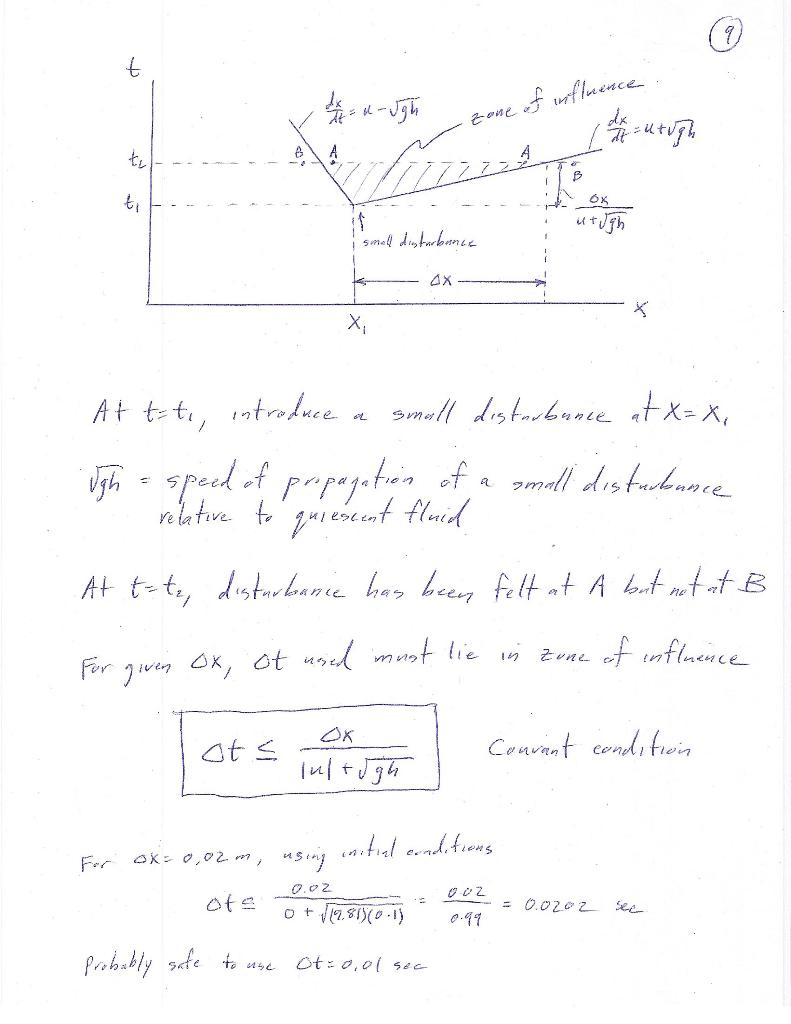 9
t
dx/dt = u - √gh
zone of influence
dx/dt = u + √gh
B A A
t₂
B
t₁
Δx / u + √gh
small disturbance
Δx
x
X₁
At t=t₁, introduce a small disturbance at X = X₁
√gh = speed of propagation of a small disturbance
relative to quiescent fluid
At t=t₂, disturbance has been felt at A but not at B
For given Δx, Δt used must lie in zone of influence
Δt ≤ Δx / |u| + √gh Courant condition
For Δx = 0.02 m, using initial conditions
Δt ≤ 0.02 / 0 + √(9.81)(0.1) = 0.02 / 0.99 = 0.0202 sec
Probably safe to use Δt = 0.01 sec